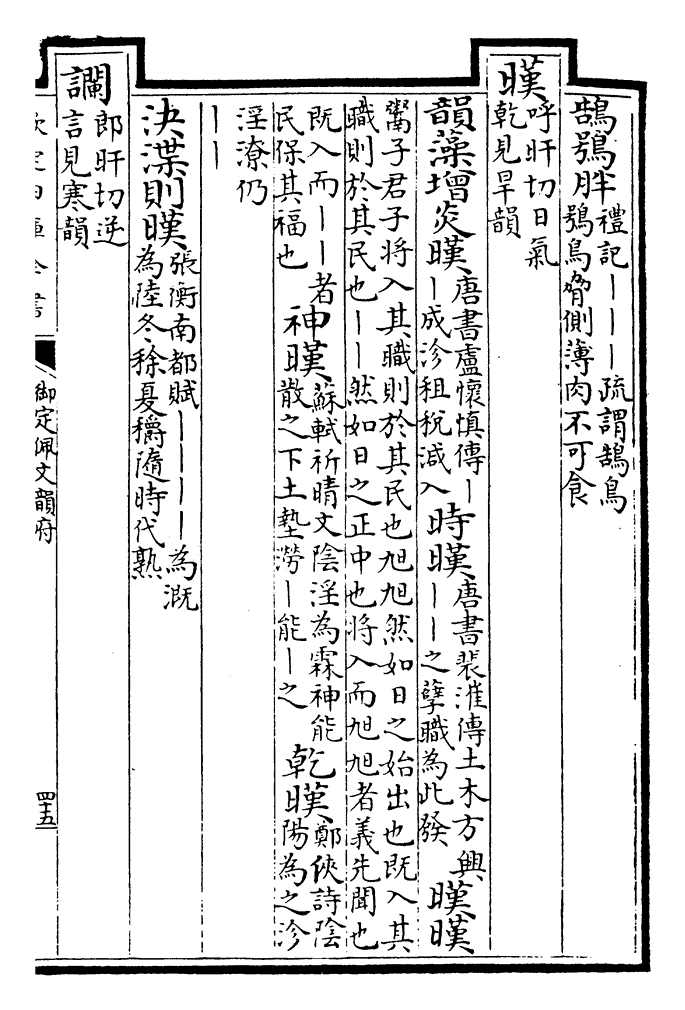 鵠鴞胖禮記｜｜｜疏謂鵠鳥
鴞鳥脅側薄肉不可食
暵呼旰切日氣
乾見旱韻
韻藻增炎暵唐書盧懷慎傳｜
｜成沴租稅減入時暵唐書裴漼傳土木方興
｜｜之孽職為此發暵暵
鬻子君子將入其職則於其民也旭旭然如日之始出也既入其
職則於其民也｜｜然如日之正中也將入而旭旭者義先聞也
既入而｜｜者
民保其福也神暵蘇軾祈晴文陰淫為霖神能
散之下土墊澇｜能｜之乾暵鄭俠詩陰
陽為之沴
淫潦仍
｜｜
決渫則暵張衡南都賦｜｜｜｜為溉
為陸冬稌夏穱隨時代熟
讕郎旰切逆
言見寒韻
欽定四庫全書
御定佩文韻府
四十五